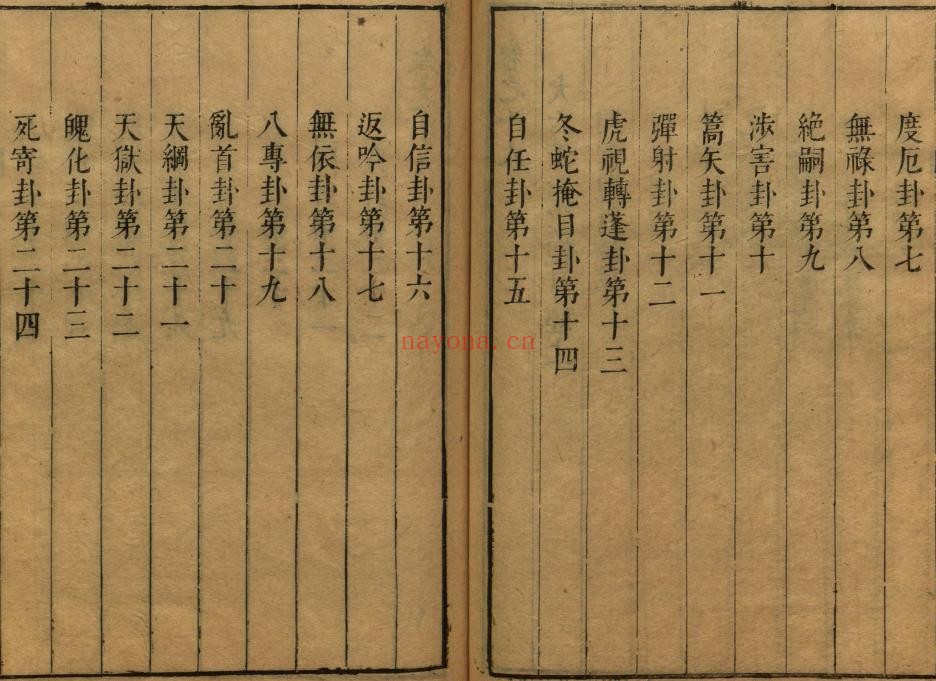 度厄卦第七
無祿卦第八
絶嗣卦第九
涉害卦第十
蒿矢卦第十一
彈射卦第十二
虎視轉蓬卦第十三
冬蛇掩目卦第十四
自任卦第十五
自信卦第十六
返吟卦第十七
無依卦第十八
八專卦第十九
亂首卦第二十
天綱卦第二十一
天獄卦第二十二
魄化卦第二十三
死寄卦第二十四
nayona.cn